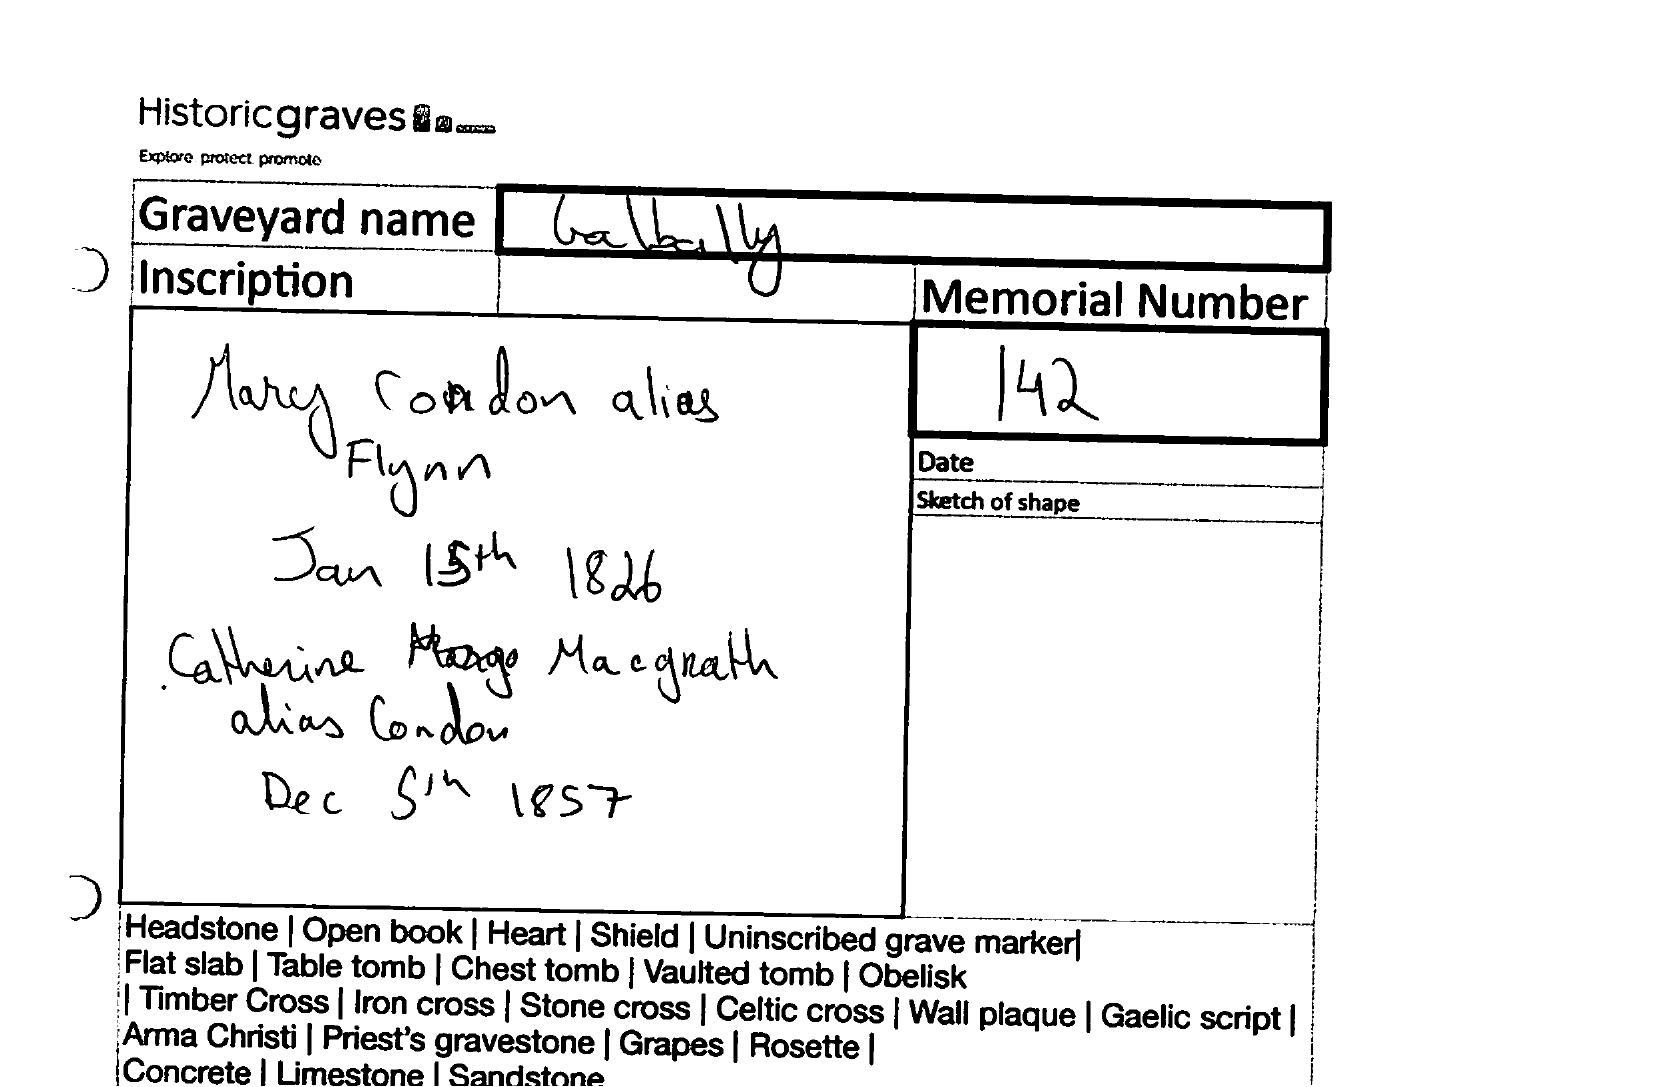 Historicgraves
Explore protect promote
Graveyard name
Galbally
Inscription
Memorial Number
142
Mary Condon alias
Flynn
Jan 15th 1826
Catherine Macgrath
alias Condon
Dec 5th 1857
Date
Sketch of shape
Headstone | Open book | Heart | Shield | Uninscribed grave marker|
Flat slab | Table tomb | Chest tomb | Vaulted tomb | Obelisk
| Timber Cross | Iron cross | Stone cross | Celtic cross | Wall plaque | Gaelic script |
Arma Christi | Priest's gravestone | Grapes | Rosette |
Concrete | Limestone | Sandstone